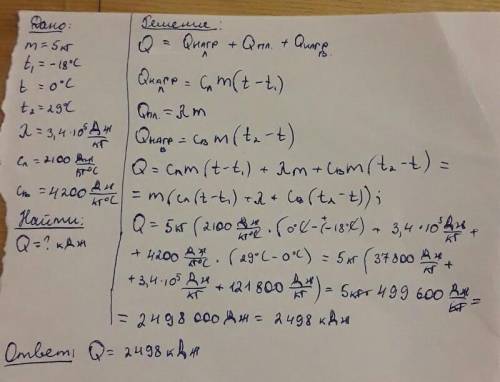 Дано:
m = 5 кг
t₁ = -18°C
t = 0°C
t₂ = 29°C
λ = 3,4·10⁵ Дж/кг
cл = 2100 Дж/кг°C
cв = 4200 Дж/кг°C
Найти:
Q = ? кДж
Решение:
Q = Qнагр л + Qпл. + Qнагр в.
Qнагр л = cл m (t - t₁)
Qпл. = λ m
Qнагр в = cв m (t₂ - t)
Q = cл m (t - t₁) + λ m + cв m (t₂ - t) =
= m (cл (t - t₁) + λ + cв (t₂ - t));
Q = 5 кг (2100 Дж/кг°C · (0°C - (-18°C) + 3,4·10⁵ Дж/кг +
+ 4200 Дж/кг°C · (29°C - 0°C) = 5 кг (37800 Дж/кг +
+ 3,4·10⁵ Дж/кг + 121800 Дж/кг) = 5 кг 499600 Дж/кг =
= 2498 000 Дж = 2498 кДж
Ответ: Q = 2498 кДж